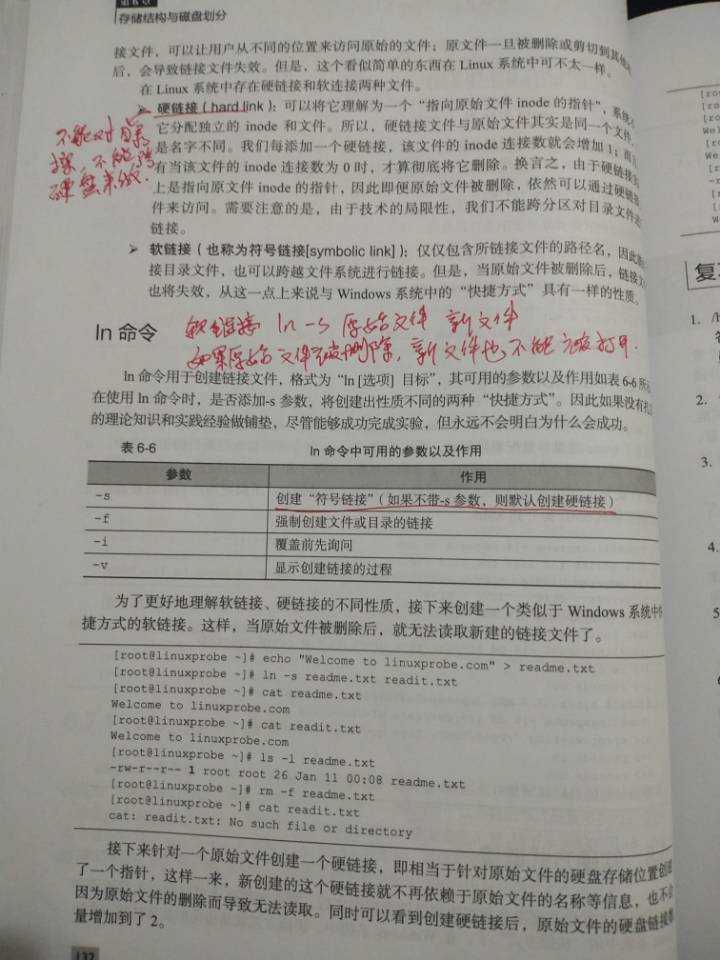 第6章
存储结构与磁盘划分
接文件，可以让用户从不同的位置来访问原始的文件；原文件一旦被删除或剪切到其他
后，会导致链接文件失效。但是，这个看似简单的东西在 Linux 系统中可不太一样。
在 Linux 系统中存在硬链接和软连接两种文件。
➢ 硬链接（hard link）：可以将它理解为一个“指向原始文件 inode 的指针”，系统不
它分配独立的 inode 和文件。所以，硬链接文件与原始文件其实是同一个文件，
是名字不同。我们每添加一个硬链接，该文件的 inode 连接数就会增加 1；而且
有当该文件的 inode 连接数为 0 时，才算彻底将它删除。换言之，由于硬链接实
上是指向原文件 inode 的指针，因此即便原始文件被删除，依然可以通过硬链接
件来访问。需要注意的是，由于技术的局限性，我们不能跨分区对目录文件进
链接。
不能对目录
不能跨
硬盘来做.
➢ 软链接（也称为符号链接[symbolic link]）：仅仅包含所链接文件的路径名，因此
接目录文件，也可以跨越文件系统进行链接。但是，当原始文件被删除后，链接文
也将失效，从这一点上来说与 Windows 系统中的“快捷方式”具有一样的性质。
ln 命令
软链接 ln -s 原始文件 新文件
如果原始文件被删除，新文件也不能被打开.
ln 命令用于创建链接文件，格式为“ln [选项] 目标”，其可用的参数以及作用如表 6-6 所
在使用 ln 命令时，是否添加-s 参数，将创建出性质不同的两种“快捷方式”。因此如果没有扎
的理论知识和实践经验做铺垫，尽管能够成功完成实验，但永远不会明白为什么会成功。
表 6-6 ln 命令中可用的参数以及作用
参数 作用
-s 创建“符号链接”（如果不带-s 参数，则默认创建硬链接）
-f 强制创建文件或目录的链接
-i 覆盖前先询问
-v 显示创建链接的过程
为了更好地理解软链接、硬链接的不同性质，接下来创建一个类似于 Windows 系统中快
捷方式的软链接。这样，当原始文件被删除后，就无法读取新建的链接文件了。
[root@linuxprobe ~]# echo "Welcome to linuxprobe.com" > readme.txt
[root@linuxprobe ~]# ln -s readme.txt readit.txt
[root@linuxprobe ~]# cat readme.txt
Welcome to linuxprobe.com
[root@linuxprobe ~]# cat readit.txt
Welcome to linuxprobe.com
[root@linuxprobe ~]# ls -l readme.txt
-rw-r--r-- 1 root root 26 Jan 11 00:08 readme.txt
[root@linuxprobe ~]# rm -f readme.txt
[root@linuxprobe ~]# cat readit.txt
cat: readit.txt: No such file or directory
接下来针对一个原始文件创建一个硬链接，即相当于针对原始文件的硬盘存储位置创建
了一个指针，这样一来，新创建的这个硬链接就不再依赖于原始文件的名称等信息，也不会
因为原始文件的删除而导致无法读取。同时可以看到创建硬链接后，原始文件的硬盘链接数
量增加到了 2。
132
[ro
[ro
Wel
[r
We
-r
[
[
W
复
1. /
2.
3.
4.
5
6